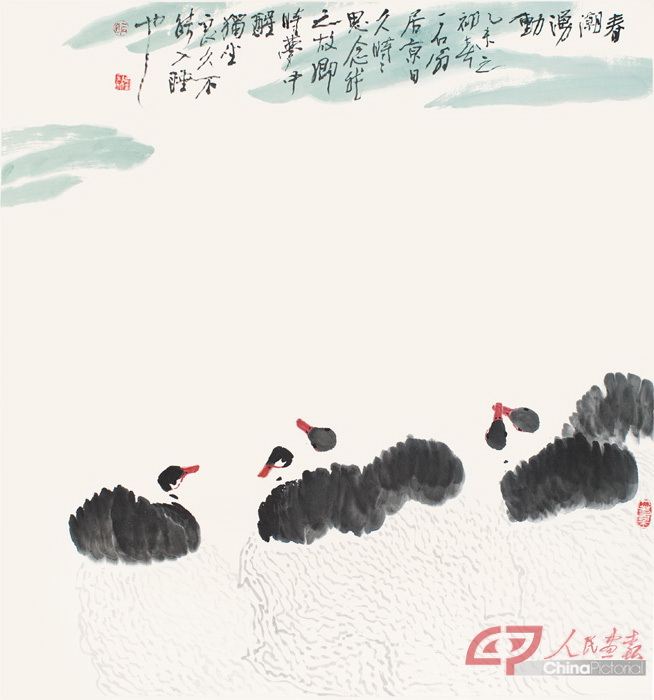 春潮湧動
乙未之
初春
一石翁
居京日
久時々
思念我
之故鄉
時夢中
醒
獨坐
良久不
能入睡
也
人民画报
ChinaPictorial